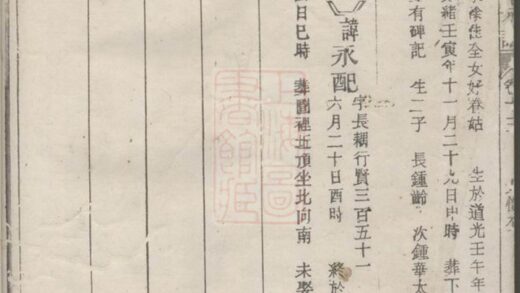 佳全女好春姑 生於道光壬午年
緒壬寅年十一月二十九日申時 葬下
有碑記 生二子 長鍾齡 次鍾華太
諱永配
字長耦行賢三百五十一
六月二十日酉時 終於
日巳時 葬 裡五頂坐北向南 未娶
上海圖
書館藏